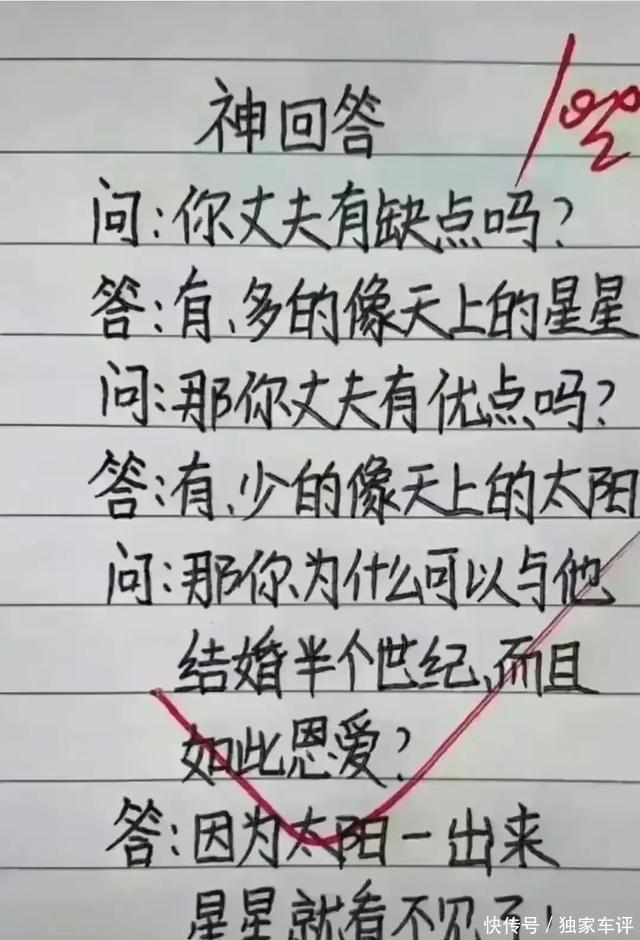 神回答
问:你丈夫有缺点吗?
答:有、多的像天上的星星
问:那你丈夫有优点吗?
答:有、少的像天上的太阳
问:那你为什么可以与他
结婚半个世纪、而且
如此恩爱?
答:因为太阳一出来
星星就看不见了!
快传号/独家车评